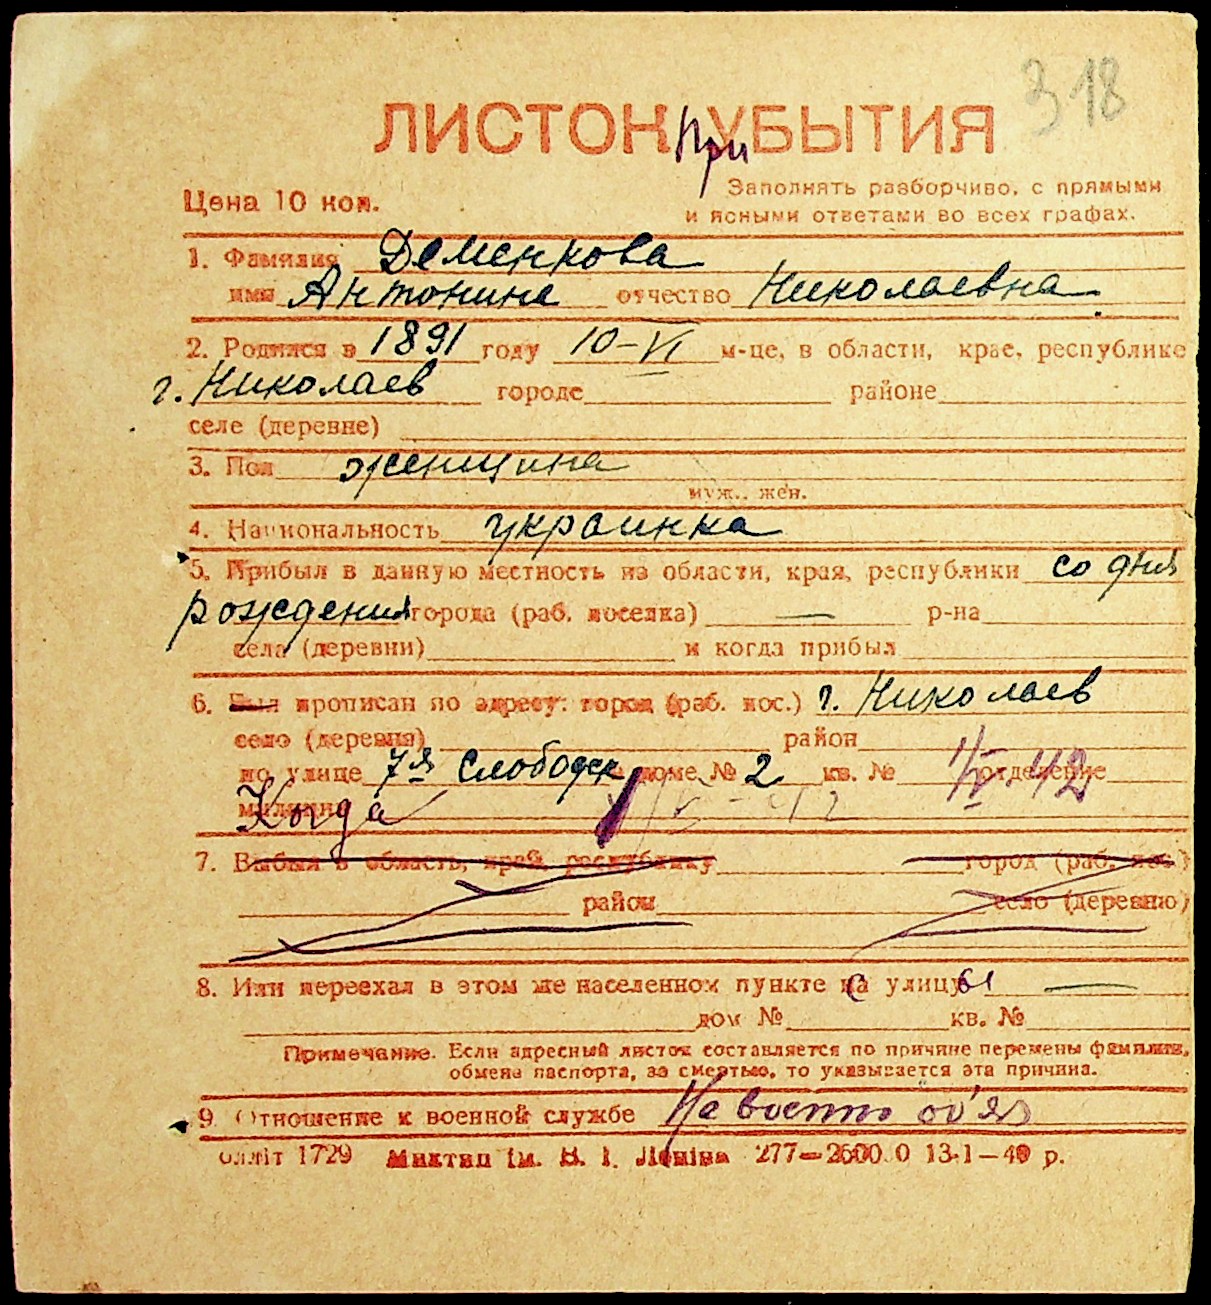 318
ЛИСТОК При УБЫТИЯ
Цена 10 коп.
Заполнять разборчиво, с прямыми
и ясными ответами во всех графах.
1. Фамилия Деменкова
имя Антонина отчество Николаевна
2. Родился в 1891 году 10-VI м-це, в области, крае, республике
г. Николаев городе районе
селе (деревне)
3. Пол женщина
муж., жен.
4. Национальность украинка
5. Прибыл в данную местность из области, края, республики со дня
рождения города (раб. поселка) — р-на
села (деревни) и когда прибыл
6. Был прописан по адресу: город (раб. пос.) г. Николаев
село (деревня) район
по улице 7я Слободск доме № 2 кв. № отделение
милиции Когда
7. Выбыл в область, край, республику город (раб. пос.)
район село (деревню)
8. Или переехал в этом же населенном пункте с улицы —
дом № кв. №
Примечание. Если адресный листок составляется по причине перемены фамилии,
обмена паспорта, за смертью, то указывается эта причина.
9. Отношение к военной службе
1729 Миктип ім. В. І. Леніна 277—2600 0 13-1—40 р.